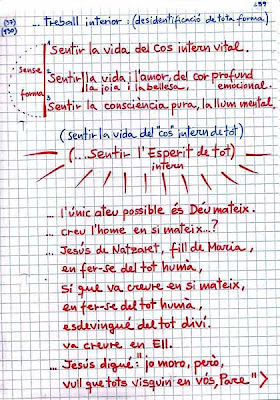 (57)
(430)
... treball interior: (desidentificació de tota forma)
Sense
forma
1 Sentir la vida del cos intern vital.
2 Sentir la vida i l'amor, del cor profund
la joia i la bellesa, emocional.
3 Sentir la consciència pura, la llum mental.
(sentir la vida del "cos" intern de tot)
(...Sentir l'Esperit de tot)
intern
... l'únic ateu possible és Déu mateix.
... creu l'home en si mateix...?
... Jesús de Natzaret, fill de Maria,
en fer-se del tot humà,
sí que va creure en si mateix,
en fer-se del tot humà,
esdevingué del tot diví.
va creure en Ell.
... Jesús digué: "jo moro, però,
vull que tots visquin en vós, Pare">